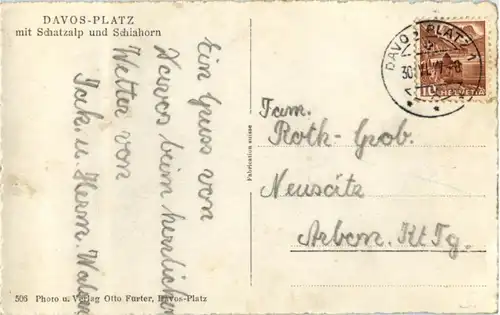 DAVOS-PLATZ
mit Schatzalp und Schiahorn
Ein Gruss von
Davos beim herrlichen
Wetter von
Jak. u. Herm.
Fabrication suisse
DAVOS-PLATZ 1
30
10 HELVETIA
Fam.
Roth-Grob.
Neuseite
Arbon. Kt Tg.
506 Photo u. Verlag Otto Furter, Davos-Platz